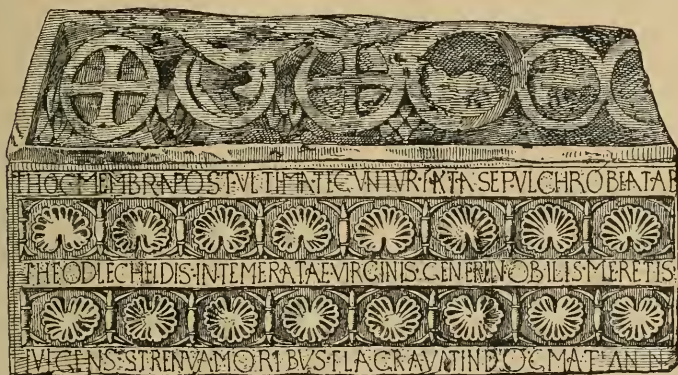 HOC·MEMBRA·POST·VLTIMA·TECVNTVR·FATA·SEPVLCHRO BEATAE
THEODLECHELDIS·INTEMERATAE·VIRGINIS·GENERE NOBILIS·MERETIS
FVLGENS·STRENVA MORIBVS·FLAGRAVIT IN DOGMAT